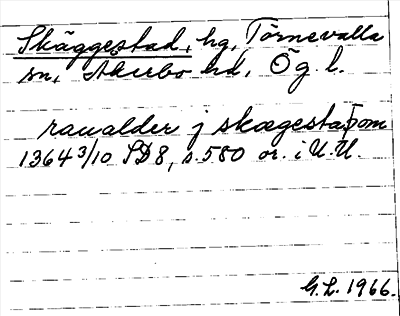 Skäggestad, hg, Törnevalla
sn, Åkerbo hd, Ög l.
raualder j skægestadom
1364 3/10 SD 8, s. 580 or. i U.U.
G.L. 1966.